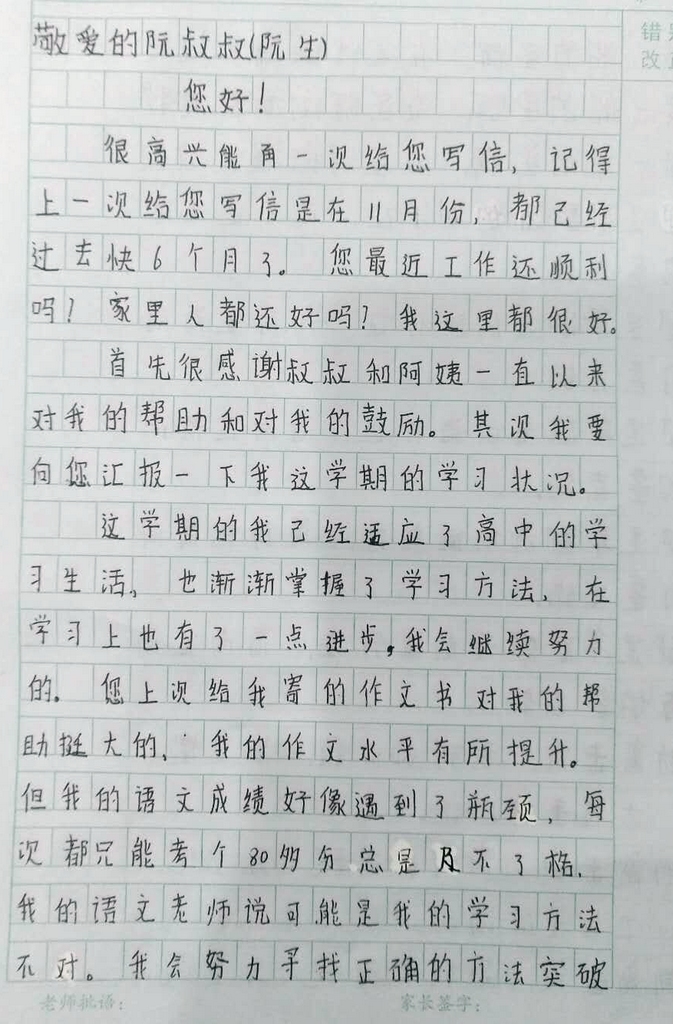 敬爱的阮叔叔(阮生)
您好!
很高兴能再一次给您写信,记得
上一次给您写信是在11月份,都已经
过去快6个月了。您最近工作还顺利
吗?家里人都还好吗?我这里都很好。
首先很感谢叔叔和阿姨一直以来
对我的帮助和对我的鼓励。其次我要
向您汇报一下我这学期的学习状况。
这学期的我已经适应了高中的学
习生活,也渐渐掌握了学习方法,在
学习上也有了一点进步,我会继续努力
的。您上次给我寄的作文书对我的帮
助挺大的,我的作文水平有所提升。
但我的语文成绩好像遇到了瓶颈,每
次都只能考个80多分总是及不了格,
我的语文老师说可能是我的学习方法
不对。我会努力寻找正确的方法突破
老师批语:
家长签字:
错
改